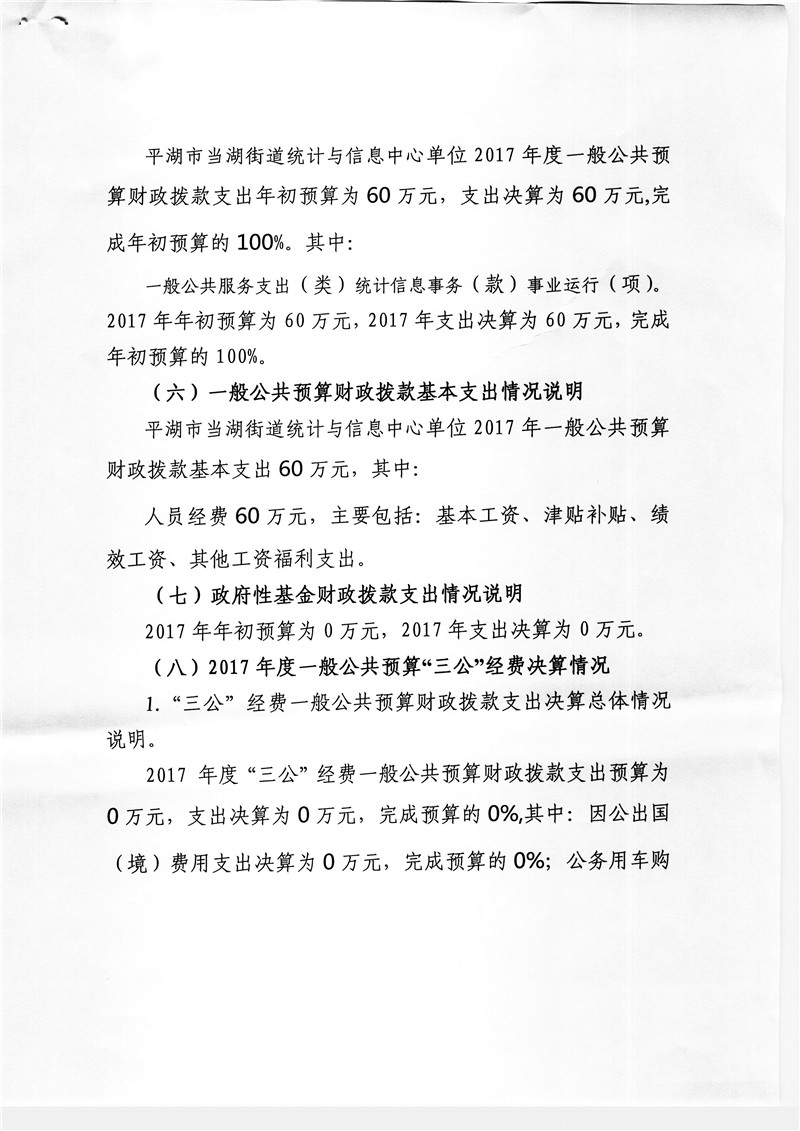 平湖市当湖街道统计与信息中心单位 2017 年度一般公共预
算财政拨款支出年初预算为 60 万元，支出决算为 60 万元,完
成年初预算的 100%。其中：
一般公共服务支出（类）统计信息事务（款）事业运行（项）。
2017 年年初预算为 60 万元，2017 年支出决算为 60 万元，完成
年初预算的 100%。
（六）一般公共预算财政拨款基本支出情况说明
平湖市当湖街道统计与信息中心单位 2017 年一般公共预算
财政拨款基本支出 60 万元，其中：
人员经费 60 万元，主要包括：基本工资、津贴补贴、绩
效工资、其他工资福利支出。
（七）政府性基金财政拨款支出情况说明
2017 年年初预算为 0 万元，2017 年支出决算为 0 万元。
（八）2017 年度一般公共预算“三公”经费决算情况
1.“三公” 经费一般公共预算财政拨款支出决算总体情况
说明。
2017 年度“三公”经费一般公共预算财政拨款支出预算为
0 万元，支出决算为 0 万元，完成预算的 0%,其中：因公出国
（境）费用支出决算为 0 万元，完成预算的 0%；公务用车购